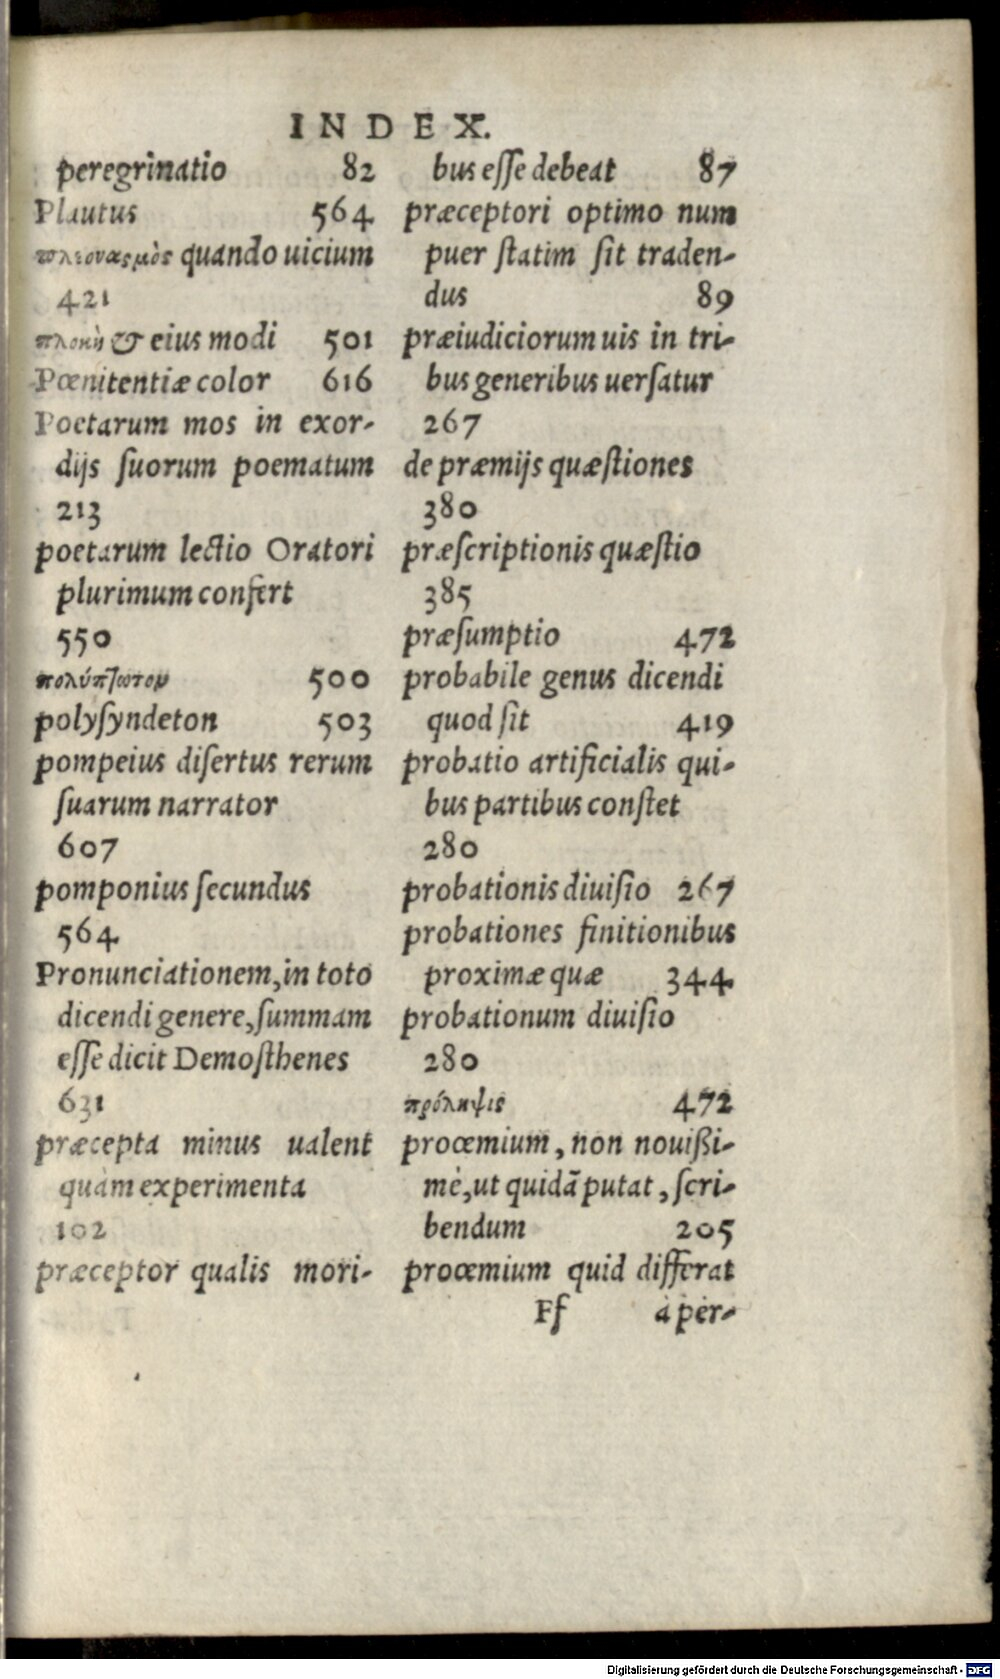 INDEX.
peregrinatio 82
Plautus 564
πλεονασμὸς quando uicium
421
πλοκὴ & eius modi 501
Pœnitentiæ color 616
Poetarum mos in exor-
dijs ſuorum poematum
213
poetarum lectio Oratori
plurimum confert
550
πολύπτωτον 500
polyſyndeton 503
pompeius diſertus rerum
ſuarum narrator
607
pomponius ſecundus
564
Pronunciationem, in toto
dicendi genere, ſummam
eſſe dicit Demoſthenes
631
præcepta minus ualent
quàm experimenta
102
præceptor qualis mori-
bus eſſe debeat 87
præceptori optimo num
puer ſtatim ſit traden-
dus 89
præiudiciorum uis in tri-
bus generibus uerſatur
267
de præmijs quæſtiones
380
præſcriptionis quæſtio
385
præſumptio 472
probabile genus dicendi
quod ſit 419
probatio artificialis qui-
bus partibus conſtet
280
probationis diuiſio 267
probationes finitionibus
proximæ quæ 344
probationum diuiſio
280
πρόληψις 472
proœmium, non nouißi-
mè, ut quidã putat, ſcri-
bendum 205
proœmium quid differat
Ff à per-
Digitalisierung gefördert durch die Deutsche Forschungsgemeinschaft - DFG